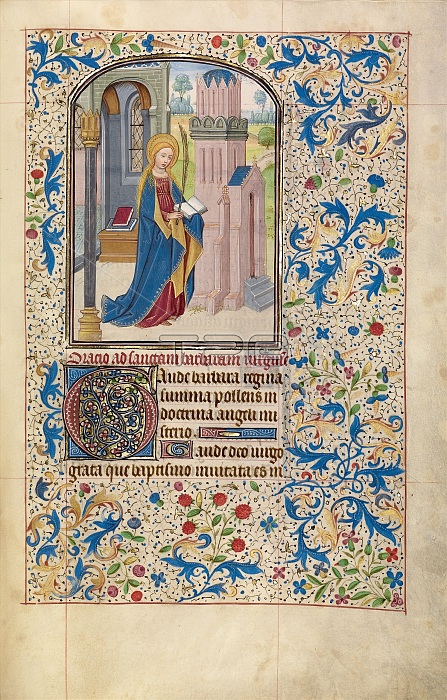 Oracio ad sanctam barbaram virginē
Gaude barbara regina
summa pollens in
doctrina angeli mi
sterio
Gaude deo virgo
grata que baptismo imitata es in